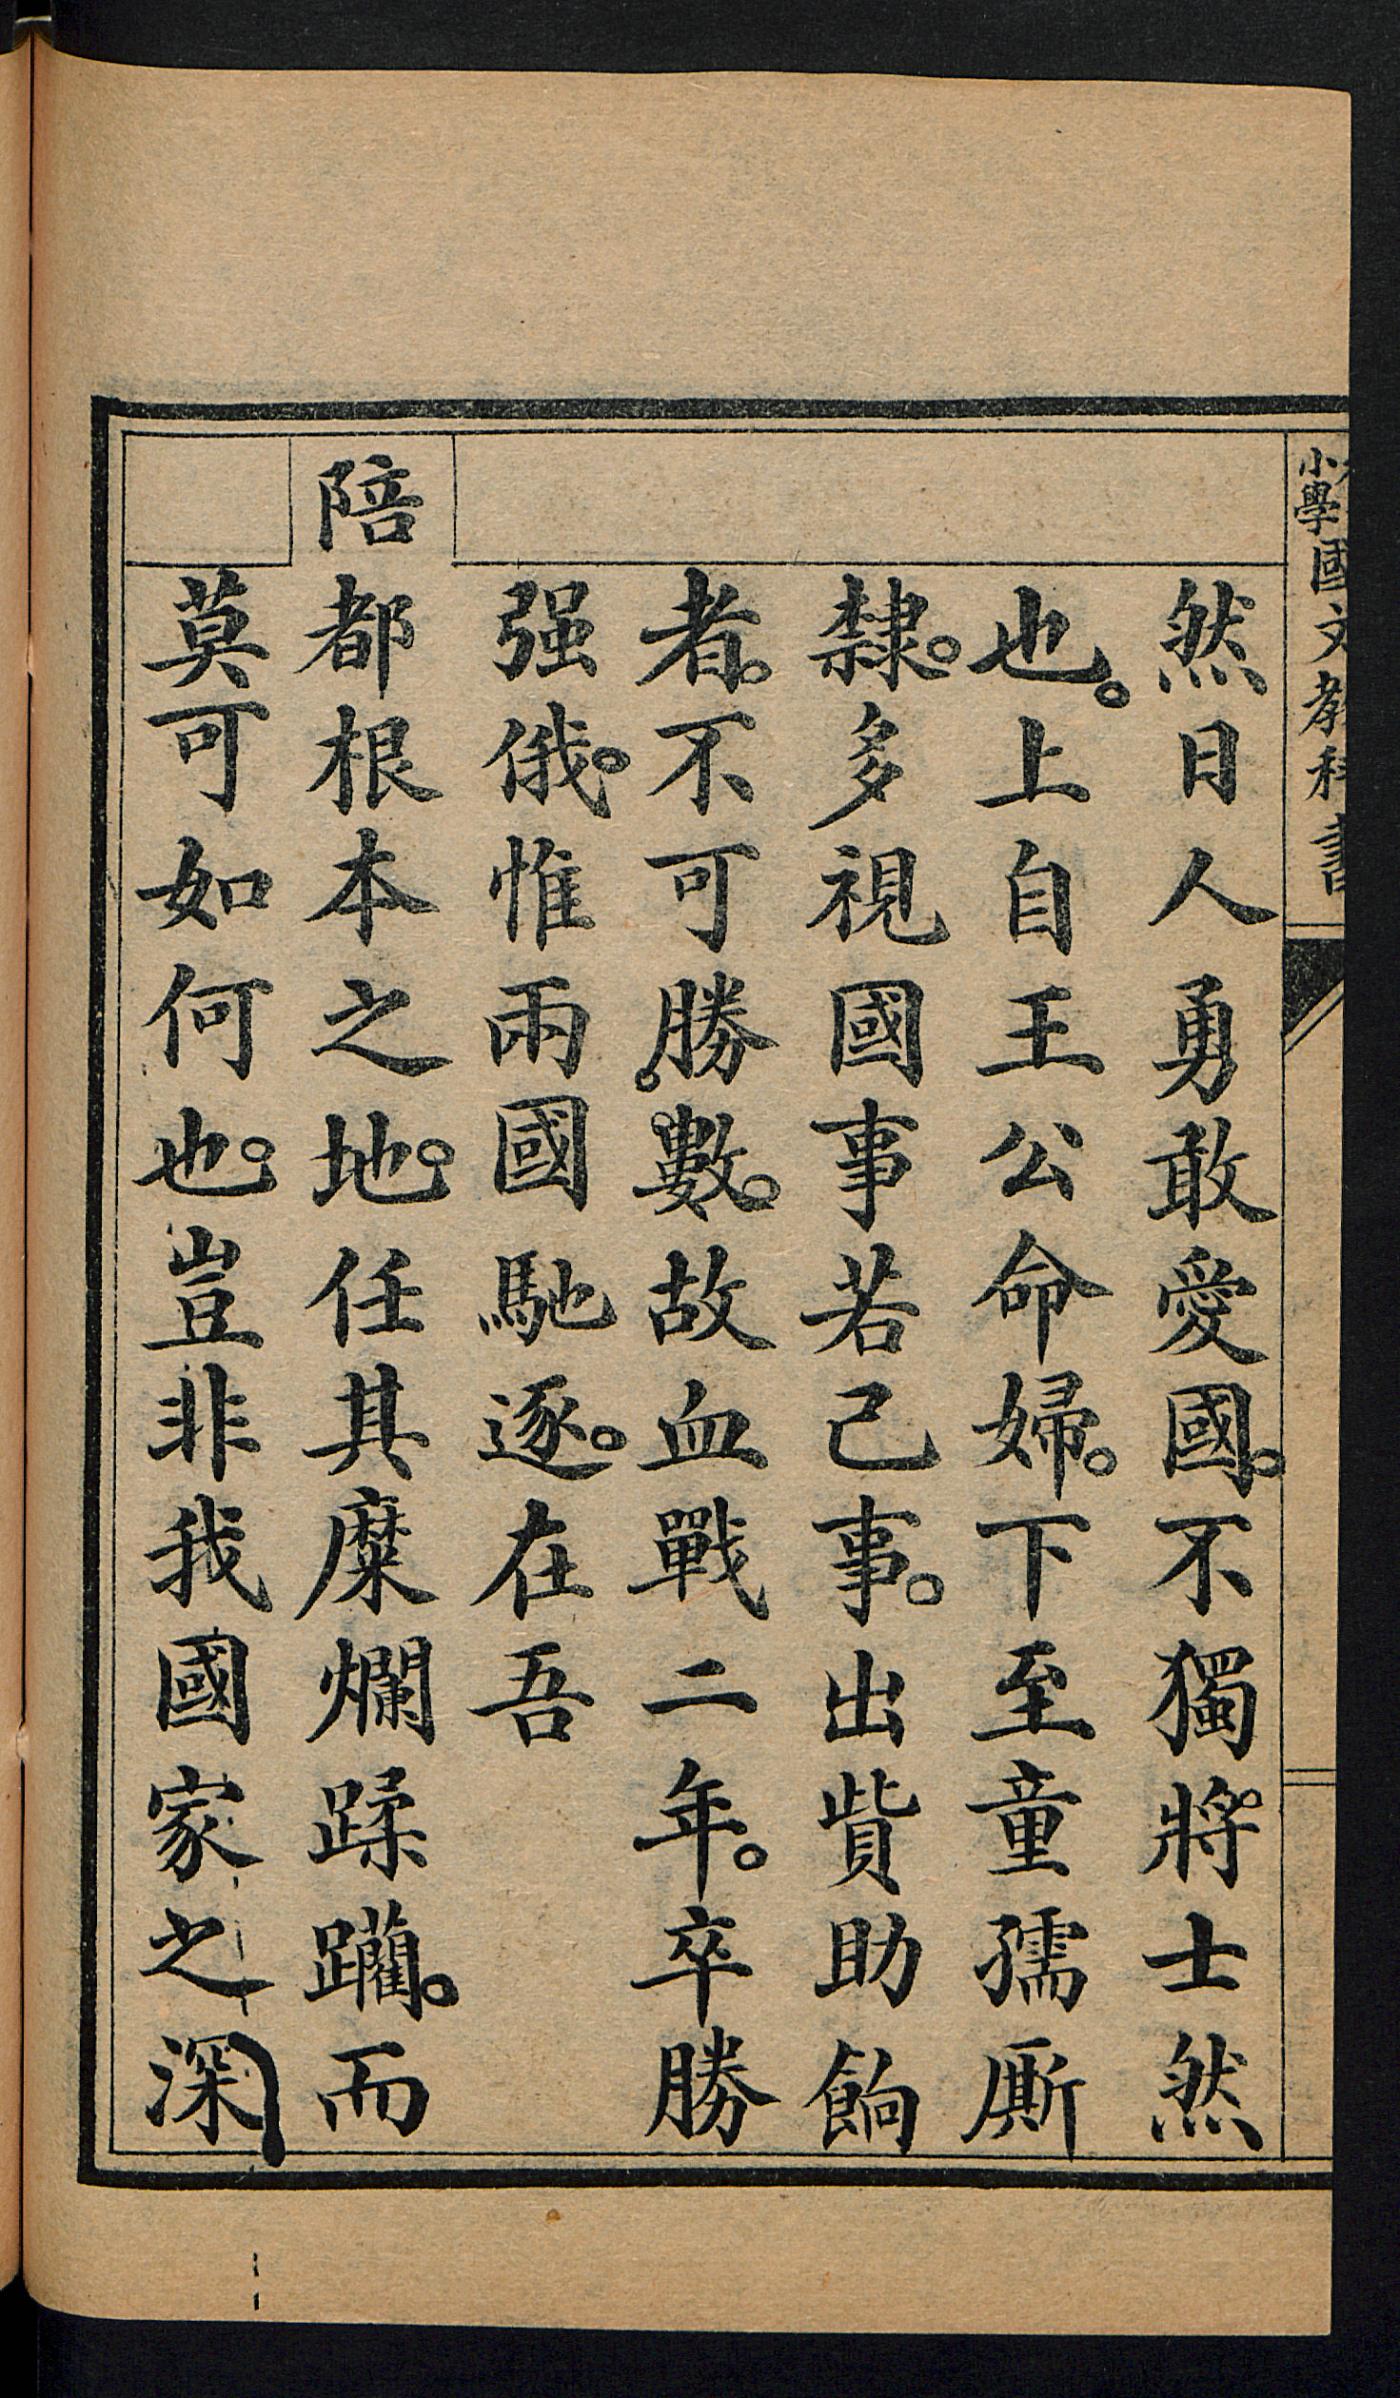 小學國文教科書
然日人勇敢愛國。不獨將士然
也。上自王公命婦。下至童孺廝
隸。多視國事若己事。出貲助餉
者。不可勝數。故血戰二年。卒勝
强俄。惟兩國馳逐。在吾
陪都根本之地。任其糜爛蹂躪。而
莫可如何也。豈非我國家之深